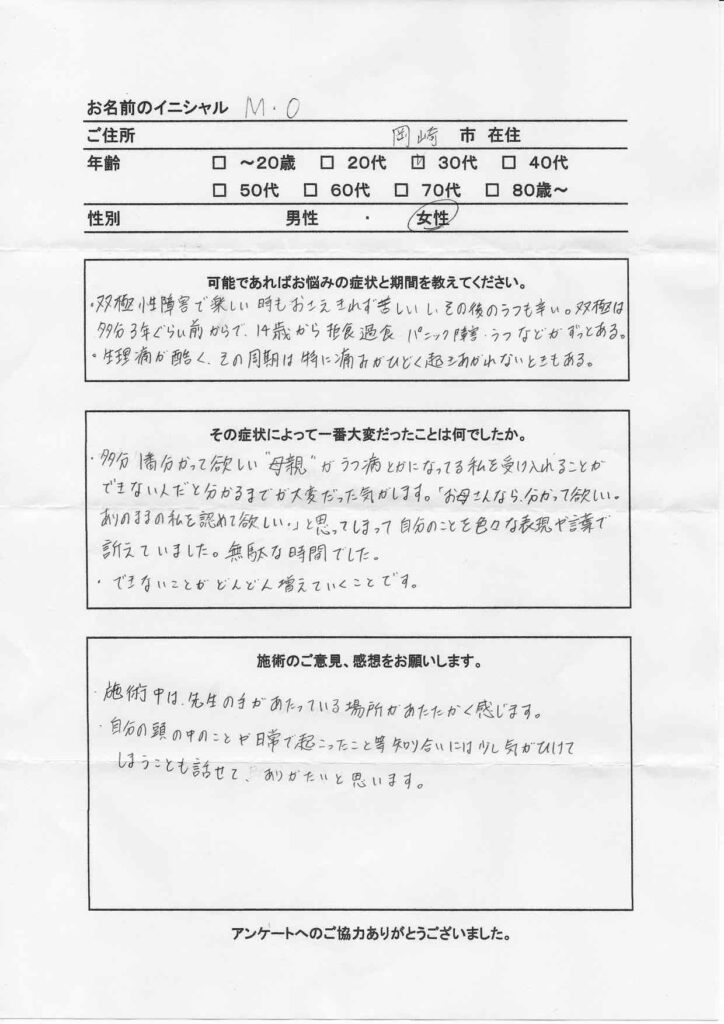 お名前のイニシャル M・O
ご住所 岡崎 市 在住
年齢 □ ～20歳 □ 20代 ☑ 30代 □ 40代
□ 50代 □ 60代 □ 70代 □ 80歳～
性別 男性 ・ 女性
可能であればお悩みの症状と期間を教えてください。
・双極性障害で楽しい時もおさえきれず苦しいし、その後のうつも辛い。双極は
多分3年ぐらい前からで、14歳から拒食過食 パニック障害・うつなどがずっとある。
・生理痛が酷く、その周期は特に痛みがひどく起きあがれないときもある。
その症状によって一番大変だったことは何でしたか。
・多分1番分かって欲しい"母親"がうつ病とかになってる私を受け入れることが
できない人だと分かるまでが大変だった気がします。「お母さんなら、分かって欲しい。
ありのままの私を認めて欲しい。」と思ってしまって自分のことを色々な表現や言葉で
訴えていました。無駄な時間でした。
・できないことがどんどん増えていくことです。
施術のご意見、感想をお願いします。
・施術中は、先生の手があたっている場所があたたかく感じます。
・自分の頭の中のことや日常で起こったこと等 知り合いには少し気がひけて
しまうことも話せて、ありがたいと思います。
アンケートへのご協力ありがとうございました。